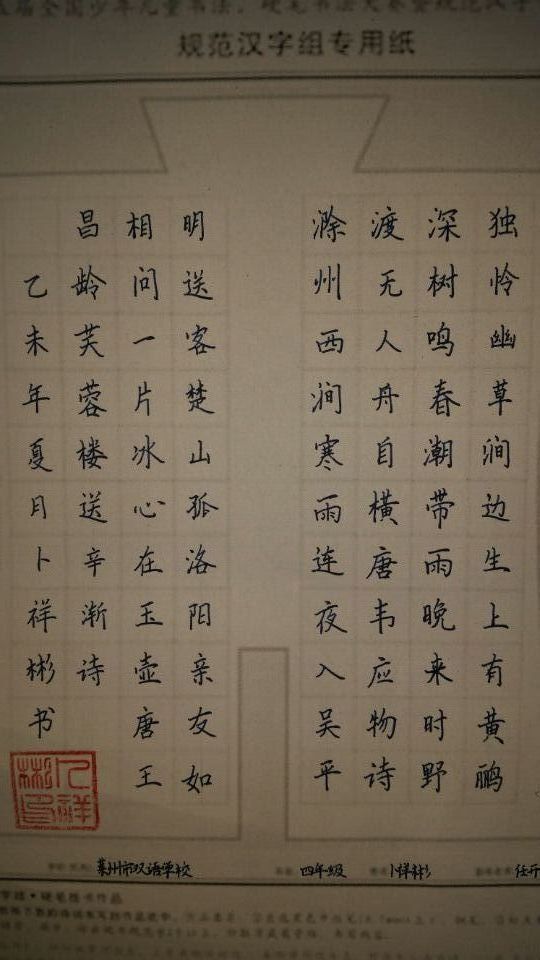 规范汉字组专用纸
独怜幽草涧边生上有黄鹂
深树鸣春潮带雨晚来时野
渡无人舟自横唐韦应物诗
滁州西涧寒雨连夜入吴平
明送客楚山孤洛阳亲友如
相问一片冰心在玉壶唐王
昌龄芙蓉楼送辛渐诗
乙未年夏月卜祥彬书
卜祥彬印
莱州市双语学校 四年级 卜祥彬